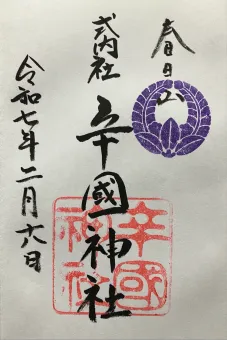 春日山
式内社
辛國神社
令和七年二月六日
辛國
神社